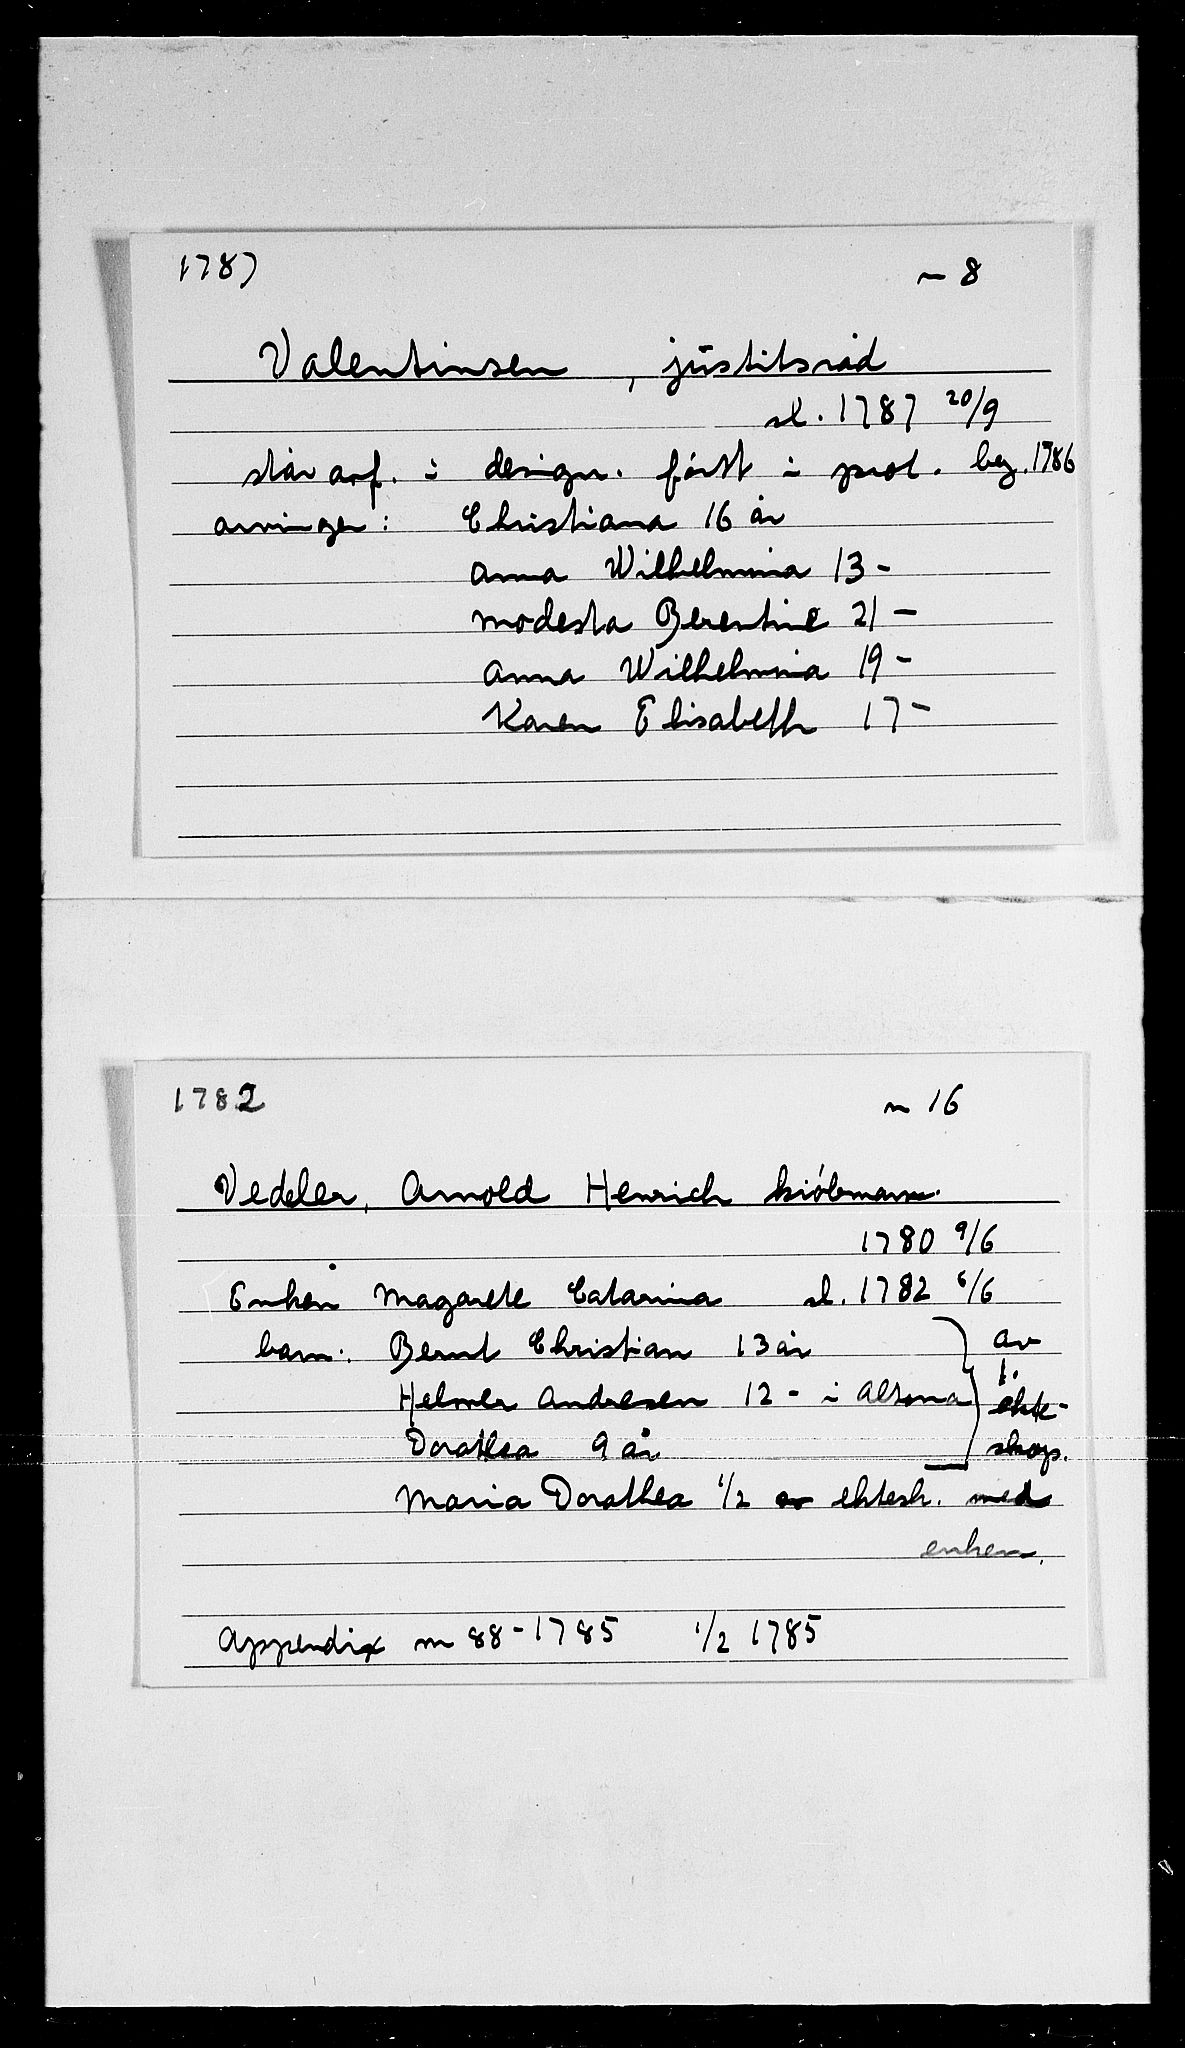 1787 n 8
Valentinsen , justitsråd
sl. 1787 20/9
står anf. i design. først i prot. beg. 1786
arvinger: Christiana 16 år
Anna Wilhelmina 13 -
Modesta Berentine 21 -
Anna Wilhelmina 19 -
Karen Elisabeth 17 -
1782 n 16
Vedeler, Arnold Henrich kiöbmann.
1780 9/6
Enken Magarete Catarina sl. 1782 6/6
barn: Bernt Christian 13 år } av
Helmer Andresen 12 - i Altona } 1. ekte-
Dorathea 9 år skap.
Maria Dorathea 1/2 av ektesk. med
enken.
Appendix n 88-1785 1/2 1785